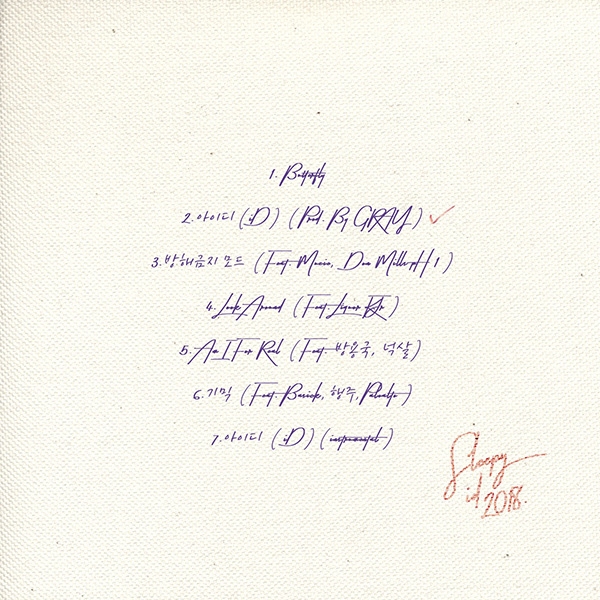 1. Butterfly
2. 아이디 (iD) (Prod. By GRAY) ✓
3. 방해금지 모드 (Feat. Moonio, Don Mills, pH-1)
4. Look Around (Feat.
5. Am I For Real (Feat. 방용국, 넉살)
6. 기믹 (Feat. Basick, 행주, Paloalto)
7. 아이디 (iD) (instrumental)
Sleepy
id
2018.